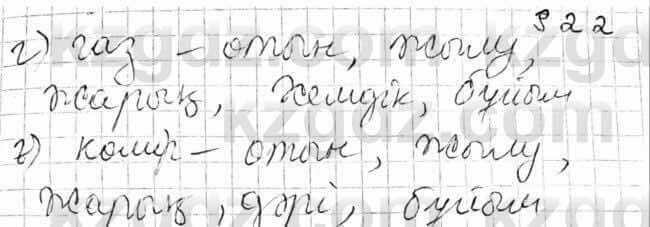 922
г) газ – отын, жылу,
жарық, желідік, бұйым
ғ) көмір – отын, жылу,
жарық, дәрі, бұйым